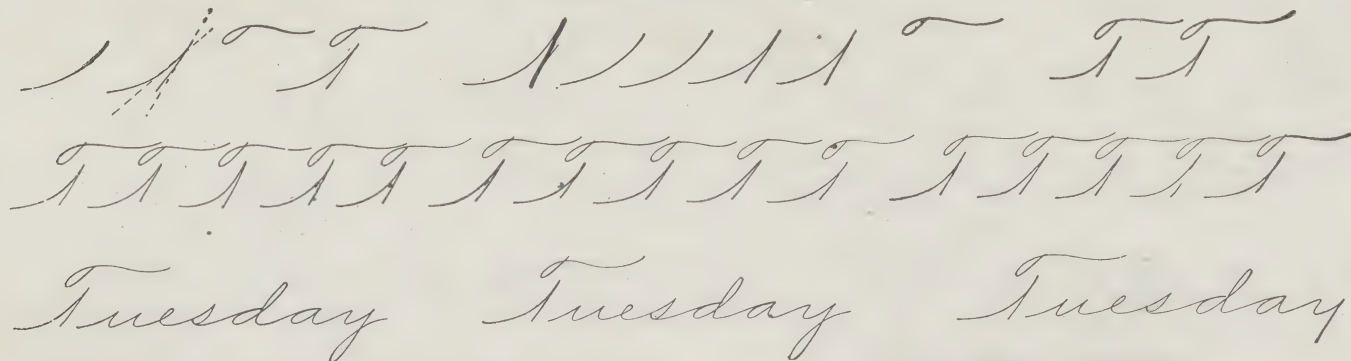 T T T
T T T T T T T T T T T T T T T
Tuesday Tuesday Tuesday